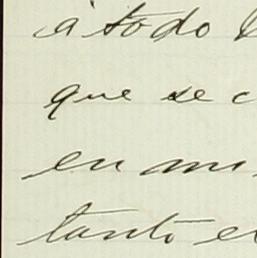 á todo
que se c
en
tanto e